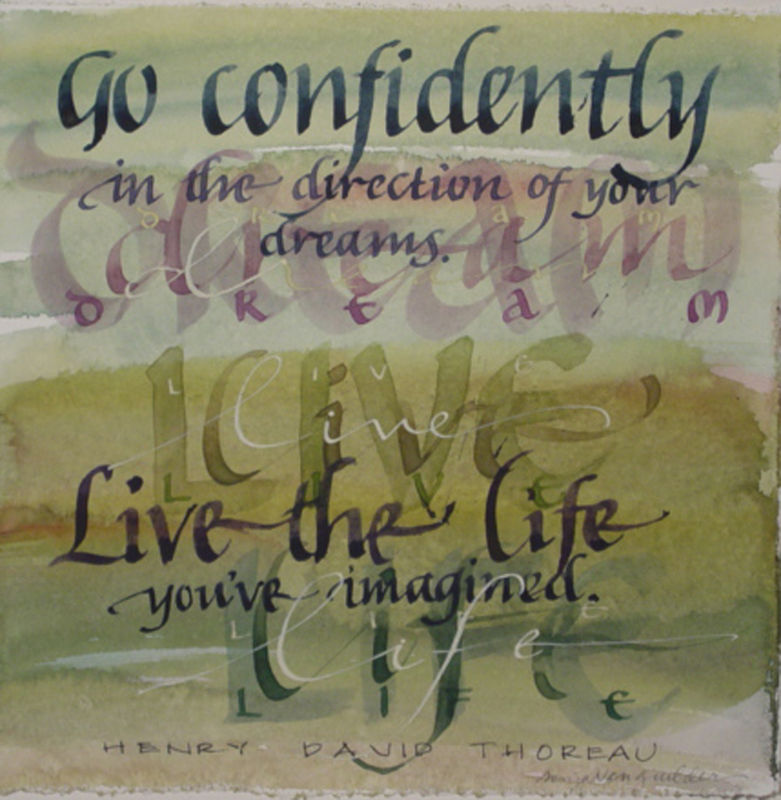 Go confidently
in the direction of your
dream
d r e a m
dreams.
dream
D R E A M
LIVE
L I V E
live
live
L I V E
Live the life
you've imagined.
life
L I F E
life
life
L I F E
HENRY DAVID THOREAU